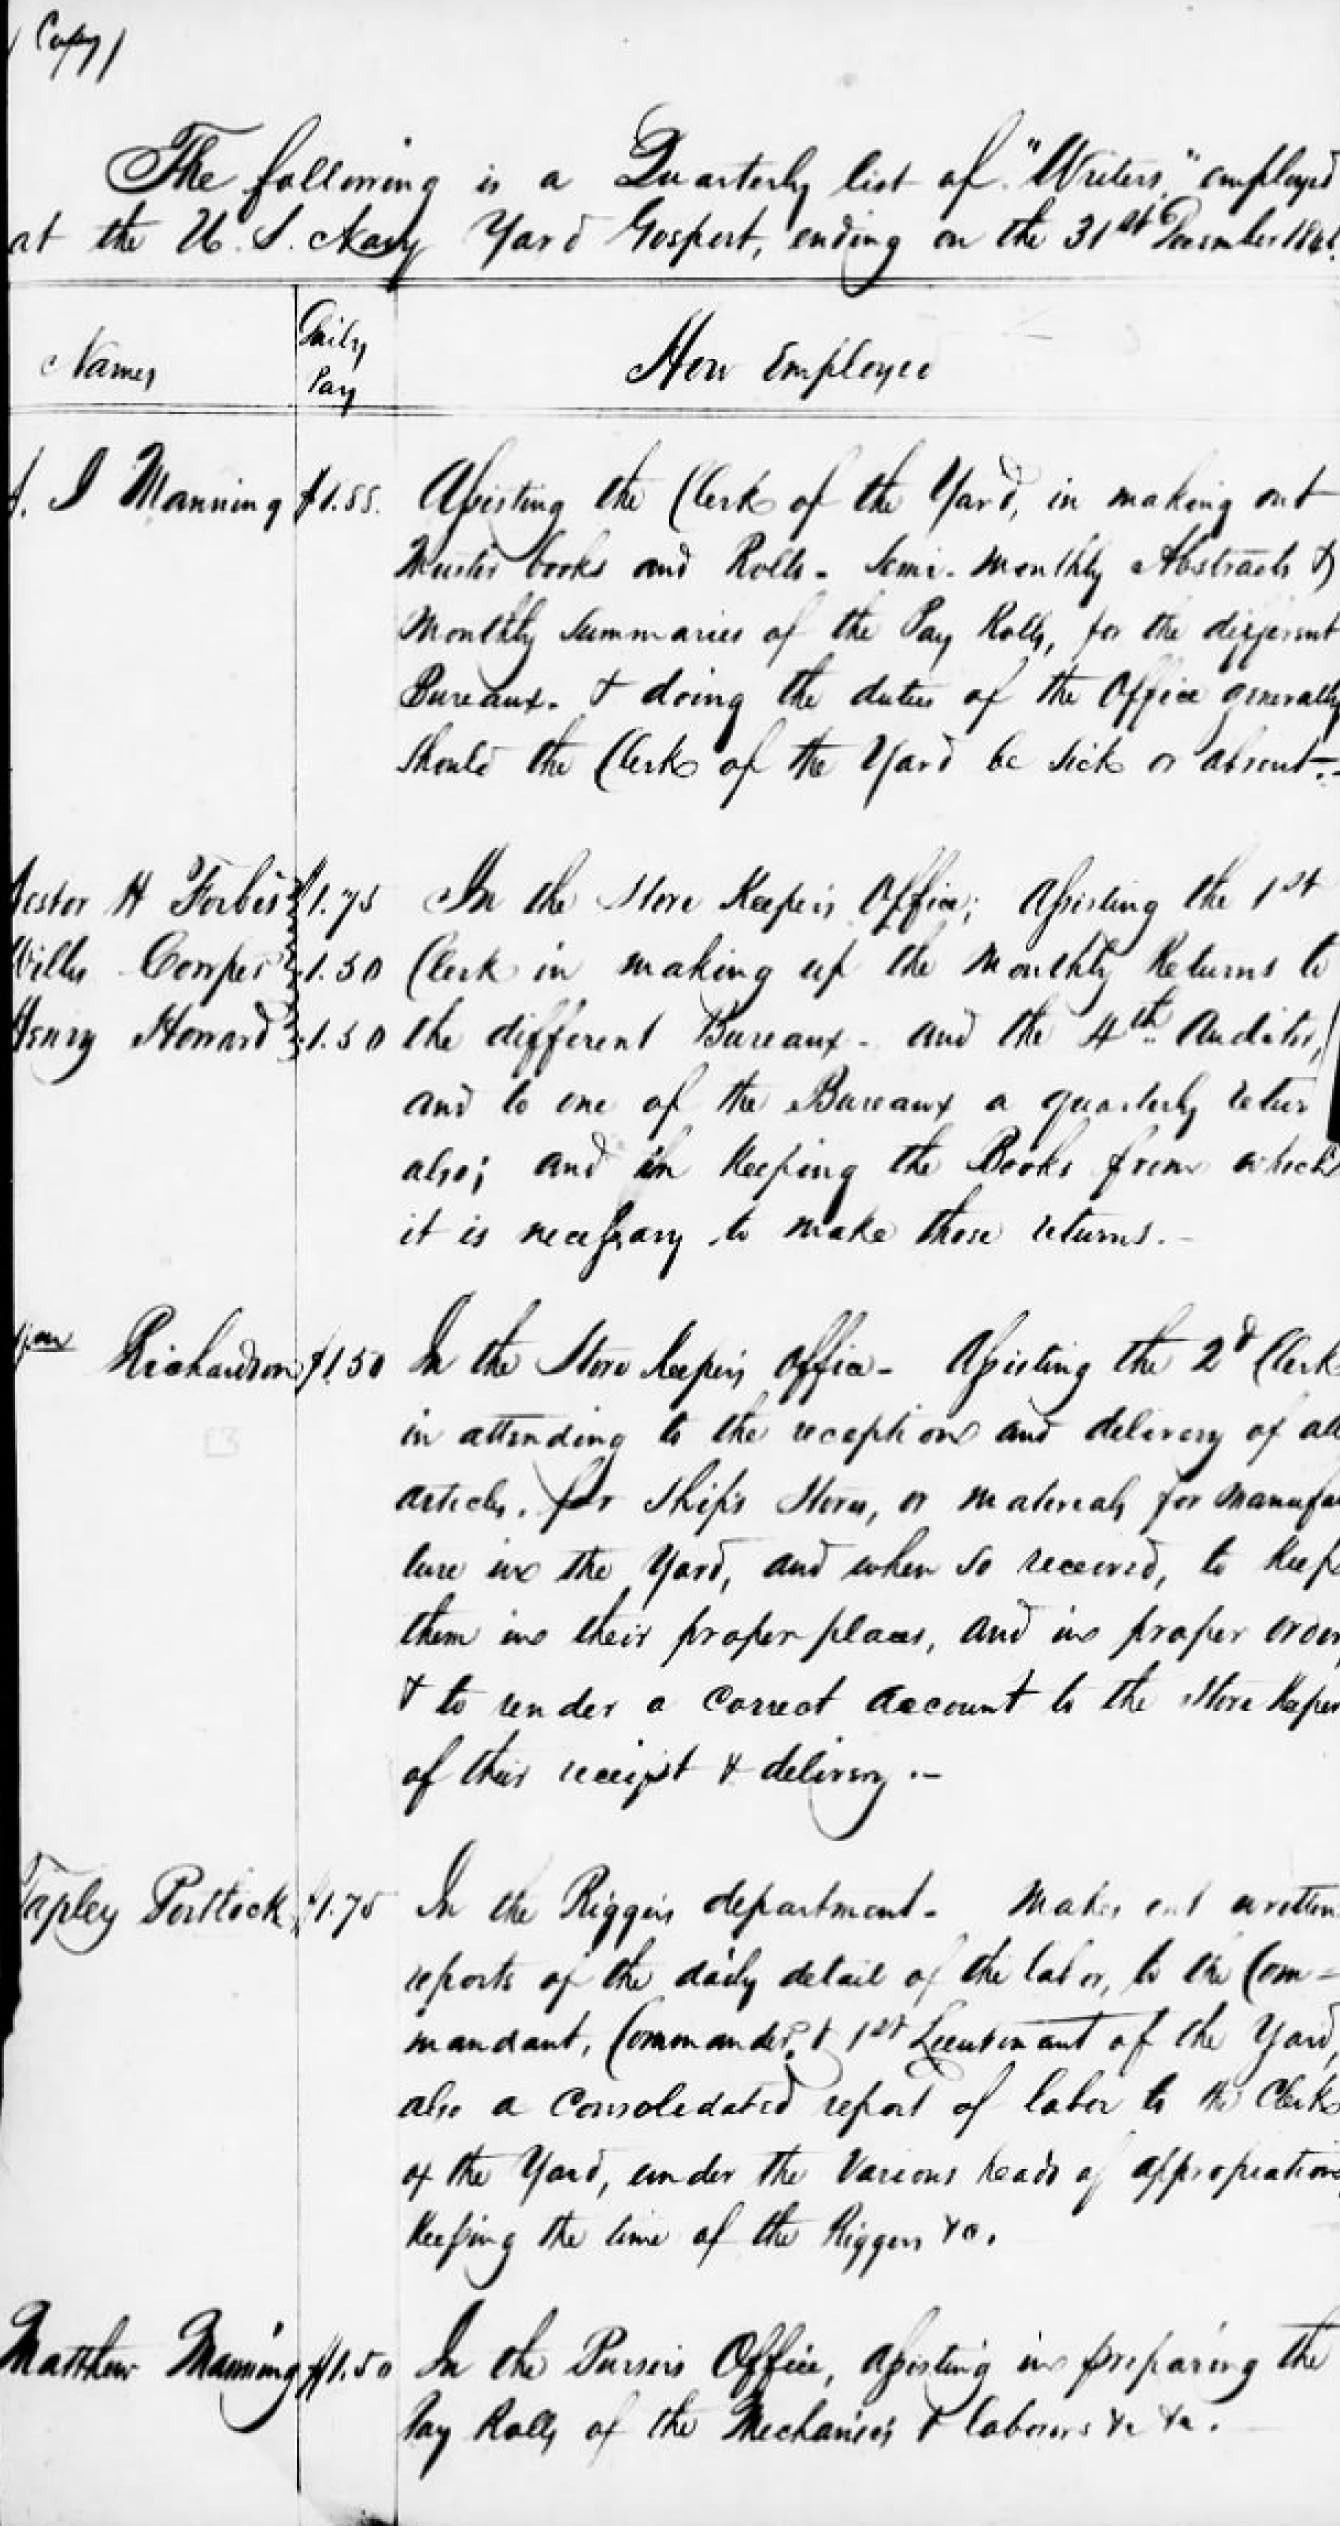 (Copy)
The following is a Quarterly list of "Writers" employed
at the U. S. Navy Yard Gosport, ending on the 31st December
Names
Daily
Pay
How Employed
I Manning $1.55. Assisting the Clerk of the Yard, in making out
Muster books and Rolls - Semi-monthly Abstracts &
Monthly Summaries of the Pay Rolls, for the different
Bureaux. & doing the duties of the Office generally
should the Clerk of the Yard be sick or absent.-
Nestor H Forbes $1.75 In the Store Keepers Office; Assisting the 1st
Willis Cowper 1.50 Clerk in making up the Monthly Returns to
Henry Howard 1.50 the different Bureaux - and the 4th Auditor,
and to one of the Bureaux a quarterly retur
also; and in keeping the Books from which
it is necessary to make those returns.-
Wm Richardson $1.50 In the Store keepers office - Assisting the 2d Clerk
in attending to the reception and delivery of all
articles, for Ship's Stores, or materials for manufac
ture in the Yard, and when so received, to keep
them in their proper places, and in proper order,
& to render a correct account to the Store Keeper
of their receipt & delivery.-
Tapley Portlock $1.75 In the Riggers department - Makes out written
reports of the daily detail of the labor, to the Com=
mandant, Commander, & 1st Lieutenant of the Yard,
also a consolidated report of labor to the Clerk
of the Yard, under the various heads of appropriation,
Keeping the time of the Riggers &c.
Matthew Manning $1.50 In the Pursers Office, Assisting in preparing the
Pay Rolls of the Mechanics & laborers &c &c.